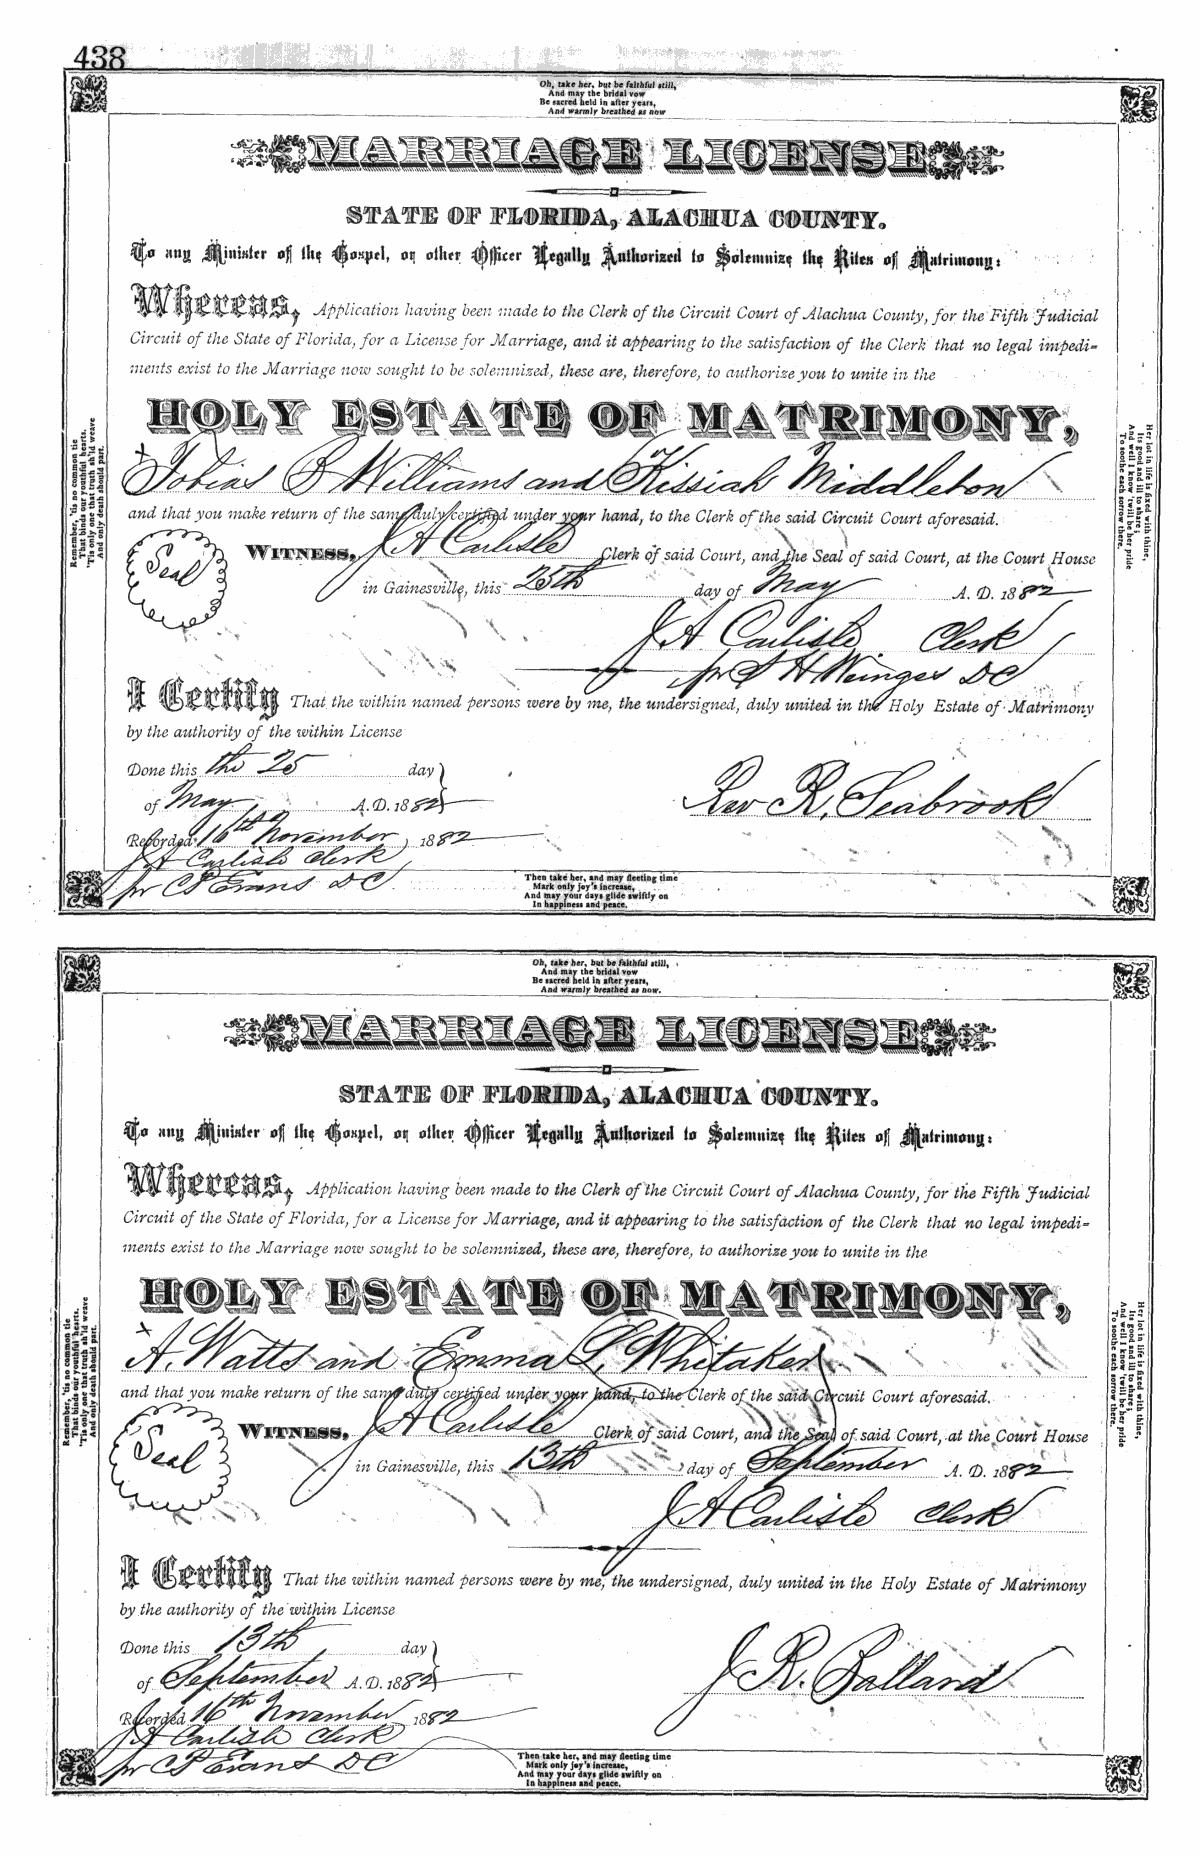 438
Oh, take her, but be faithful still,
And may the bridal vow
Be sacred held in after years,
And warmly breathed as now
MARRIAGE LICENSE
STATE OF FLORIDA, ALACHUA COUNTY.
To any Minister of the Gospel, or other Officer Legally Authorized to Solemnize the Rites of Matrimony:
Whereas, Application having been made to the Clerk of the Circuit Court of Alachua County, for the Fifth Judicial
Circuit of the State of Florida, for a License for Marriage, and it appearing to the satisfaction of the Clerk that no legal impedi-
ments exist to the Marriage now sought to be solemnized, these are, therefore, to authorize you to unite in the
HOLY ESTATE OF MATRIMONY,
x Tobias B Williams and Kissiah Middleton
and that you make return of the same duly certified under your hand, to the Clerk of the said Circuit Court aforesaid.
Seal
WITNESS, J A Carlisle Clerk of said Court, and the Seal of said Court, at the Court House
in Gainesville, this 25th day of May A. D. 1882
J A Carlisle Clerk
pr S H Wienges DC
I Certify That the within named persons were by me, the undersigned, duly united in the Holy Estate of Matrimony
by the authority of the within License
Done this the 25 day
of May A.D. 1882
Rev R. Seabrook
Recorded 16th November, 1882
J A Carlisle Clerk
pr C P Evans DC
Remember, 'tis no common tie
That binds our youthful hearts.
'Tis only one that truth sh'ld weave
And only death should part.
Her lot in life is fixed with thine,
Its good and ill to share;
And well I know 'twill be her pride
To soothe each sorrow there.
Then take her, and may fleeting time
Mark only joy's increase,
And may your days glide swiftly on
In happiness and peace.
Oh, take her, but be faithful still,
And may the bridal vow
Be sacred held in after years,
And warmly breathed as now.
MARRIAGE LICENSE
STATE OF FLORIDA, ALACHUA COUNTY.
To any Minister of the Gospel, or other Officer Legally Authorized to Solemnize the Rites of Matrimony:
Whereas, Application having been made to the Clerk of the Circuit Court of Alachua County, for the Fifth Judicial
Circuit of the State of Florida, for a License for Marriage, and it appearing to the satisfaction of the Clerk that no legal impedi-
ments exist to the Marriage now sought to be solemnized, these are, therefore, to authorize you to unite in the
HOLY ESTATE OF MATRIMONY,
x A. Watts and Emma L. Whitaker
and that you make return of the same duly certified under your hand, to the Clerk of the said Circuit Court aforesaid.
Seal
WITNESS, J A Carlisle Clerk of said Court, and the Seal of said Court, at the Court House
in Gainesville, this 13th day of September A. D. 1882
J A Carlisle Clerk
I Certify That the within named persons were by me, the undersigned, duly united in the Holy Estate of Matrimony
by the authority of the within License
Done this 13th day
of September A.D. 1882
J R. Balland
Recorded 16th November 1882
J A Carlisle Clerk
pr C P Evans DC
Remember, 'tis no common tie
That binds our youthful hearts.
'Tis only one that truth sh'ld weave
And only death should part.
Her lot in life is fixed with thine,
Its good and ill to share;
And well I know 'twill be her pride
To soothe each sorrow there.
Then take her, and may fleeting time
Mark only joy's increase,
And may your days glide swiftly on
In happiness and peace.